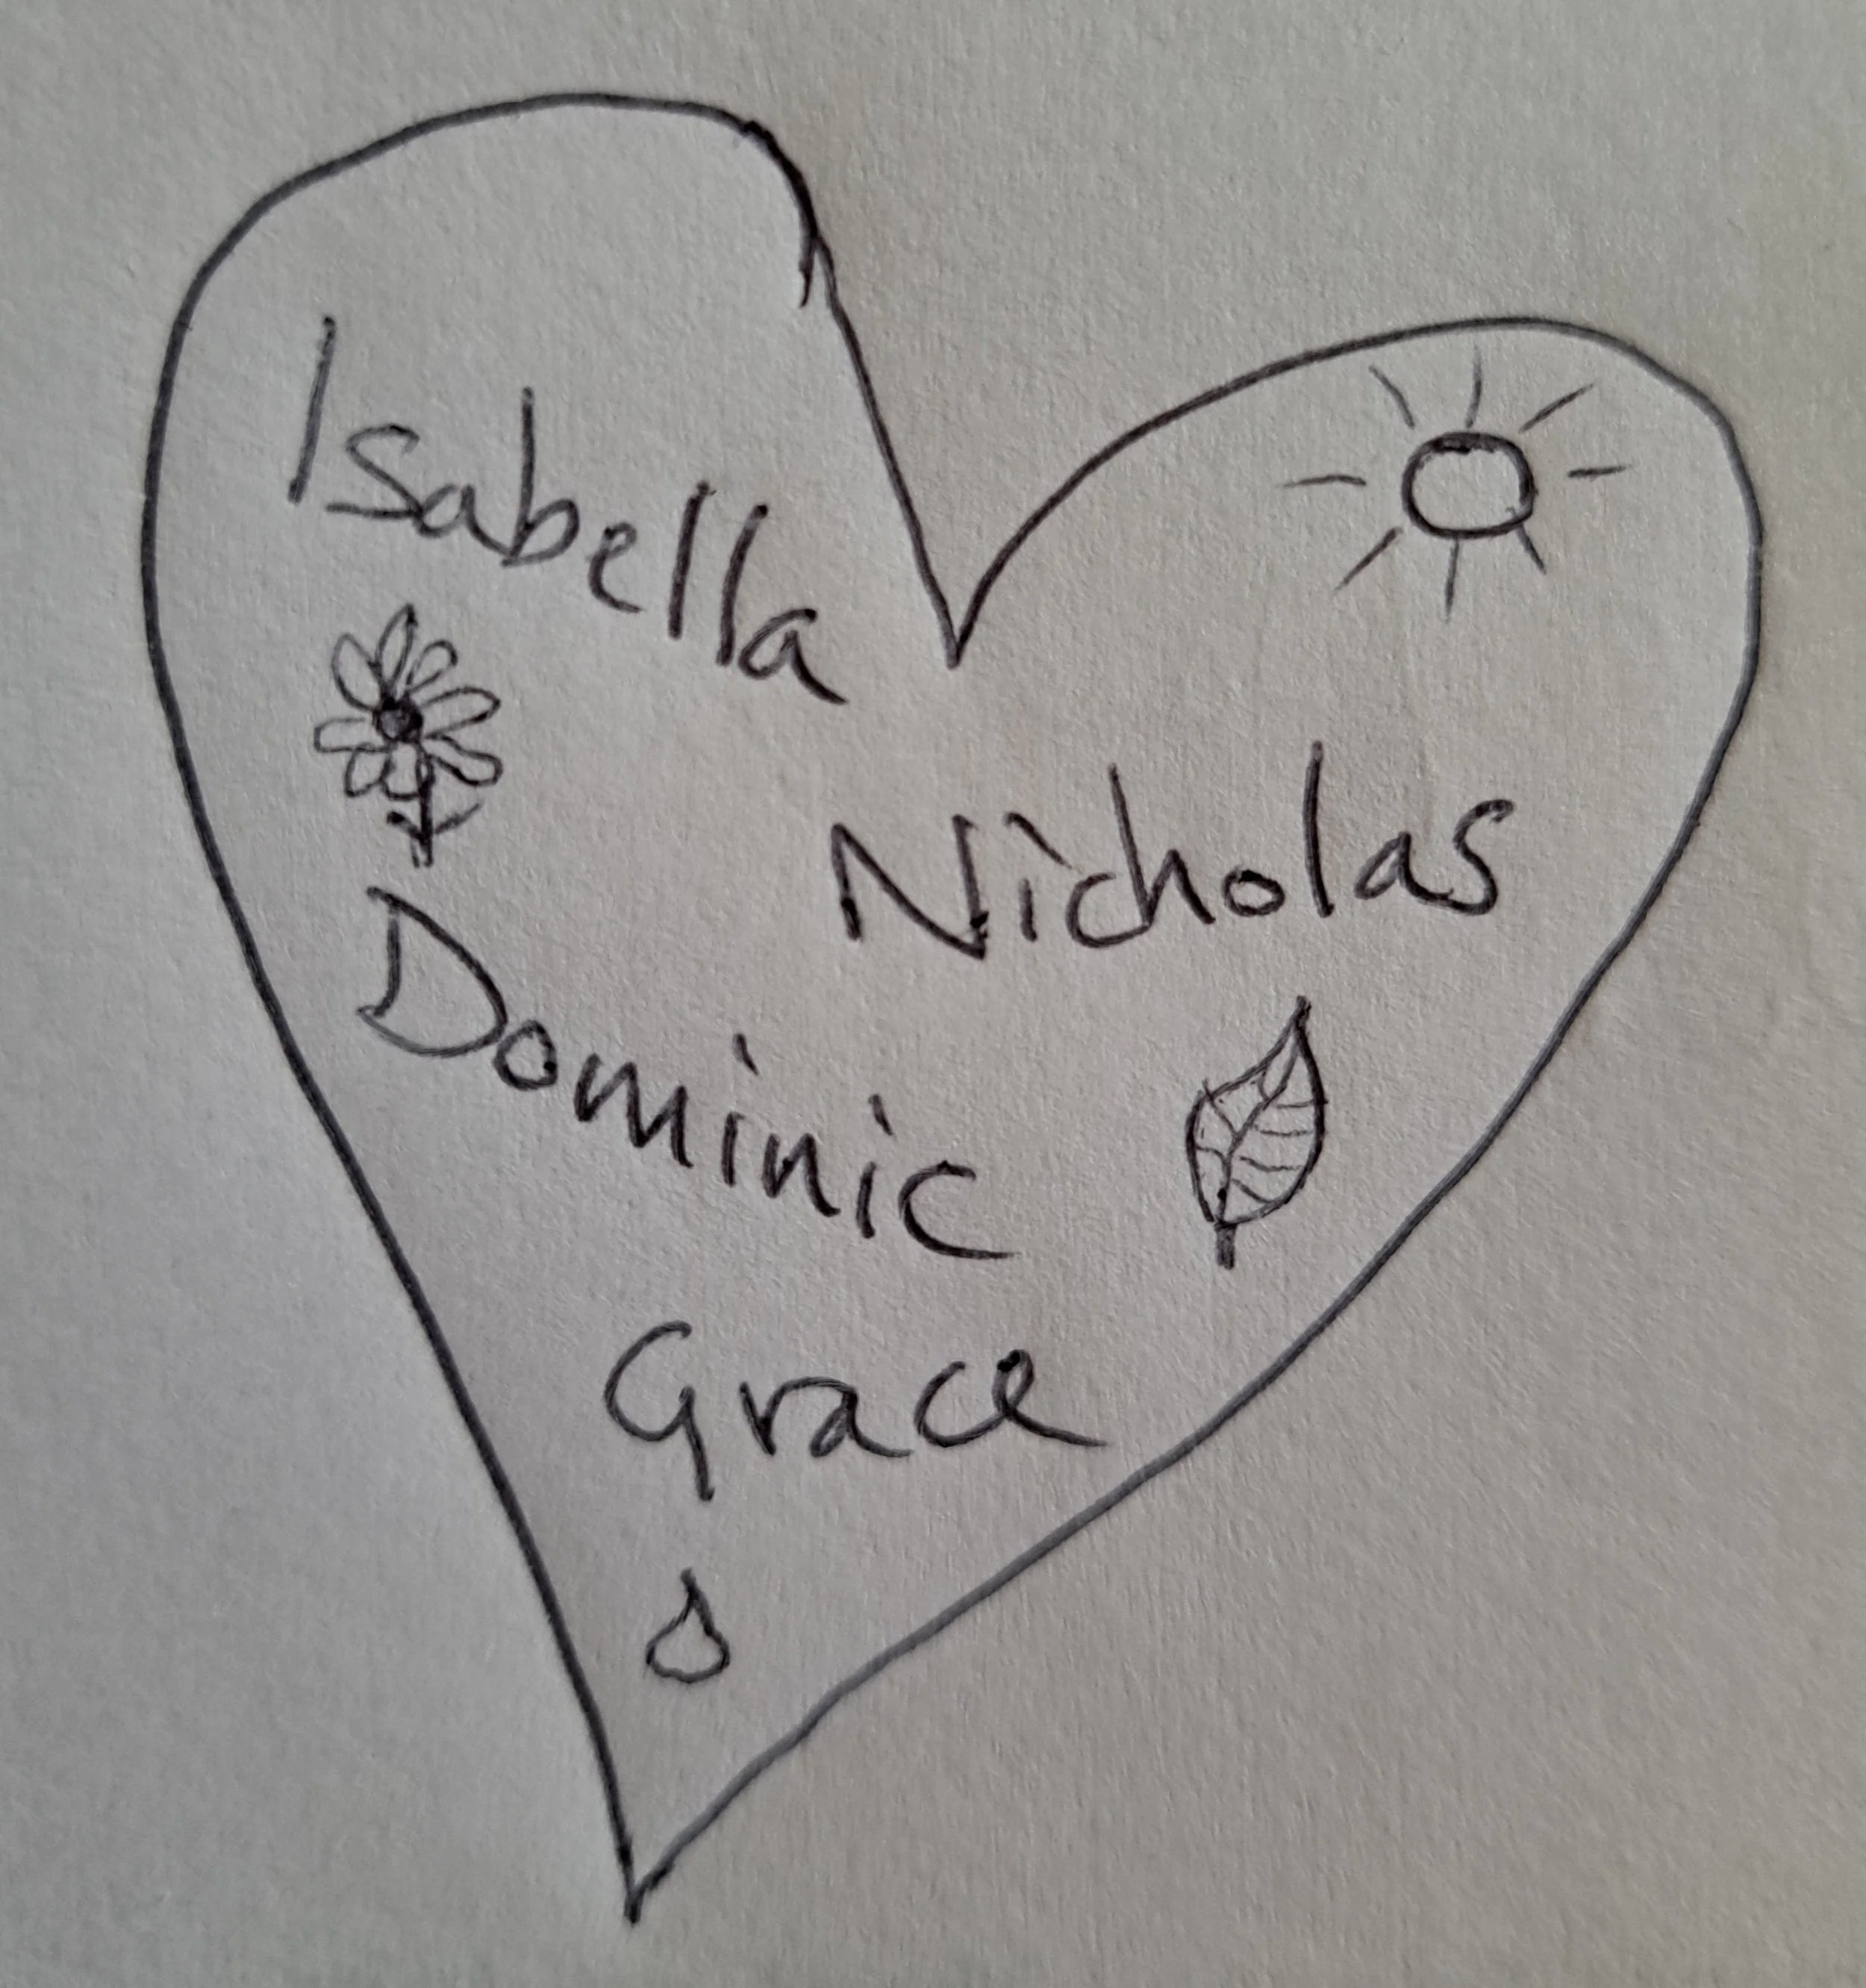 Isabella
Nicholas
Dominic
Grace